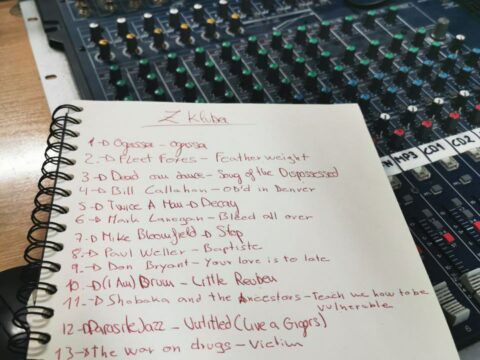 Z Kluba
1-D Ogassa - Ogassa
2-D Fleet Foxes - Featherweight
3-D Dead can dance - Song of the Dispossessed
4-D Bill Callahan - Ob'd in Denver
5-D Twice A Man-D Decay
6-D Mark Lanegan - Bleed all over
7-D Mike Bloomfield-D Stop
8-D Paul Weller - Baptiste
9-D Don Bryant - Your love is to late
10-D (I Am) Drum - Little Reuben
11-D Shabaka and the Ancestors - Teach me how to be
vulnerable
12-D Parasite Jazz - Untitled (Live a Gigors)
13-D The war on drugs - Victim
MP3
CD1
CD2